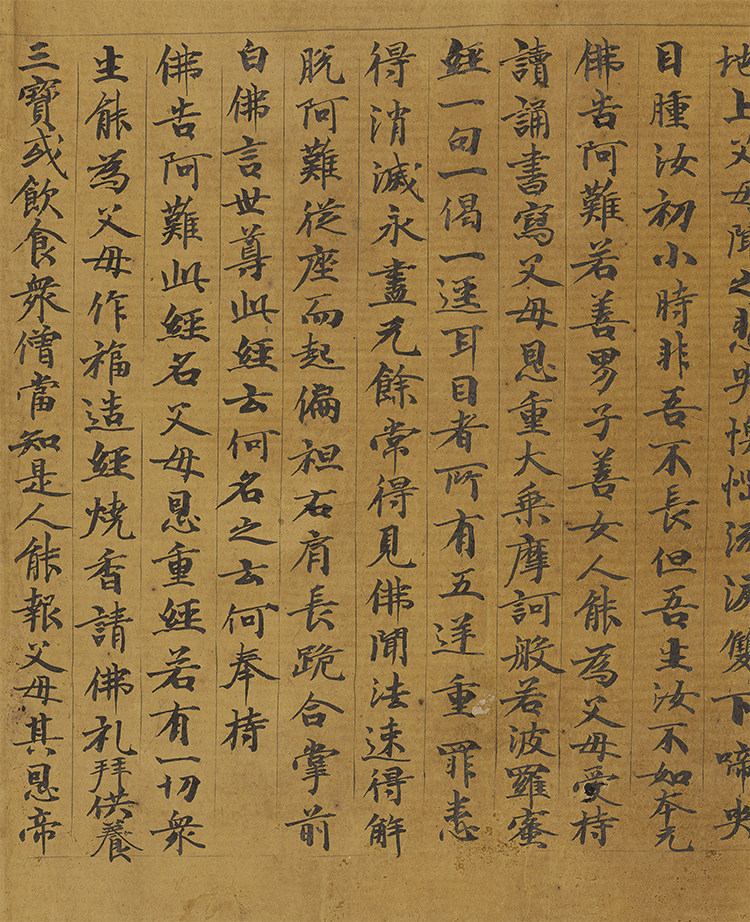 地上父母聞之悲哭懊惱流淚雙下啼哭
目腫汝初小時非吾不長但吾生汝不如本无
佛告阿難若善男子善女人能為父母受持
讀誦書寫父母恩重大乘摩訶般若波羅蜜
經一句一偈一逕耳目者所有五逆重罪悉
得消滅永盡无餘常得見佛聞法速得解
脫阿難從座而起偏袒右肩長跪合掌前
白佛言世尊此經云何名之云何奉持
佛告阿難此經名父母恩重經若有一切衆
生能為父母作福造經燒香請佛礼拜供養
三寶或飲食衆僧當知是人能報父母其恩帝